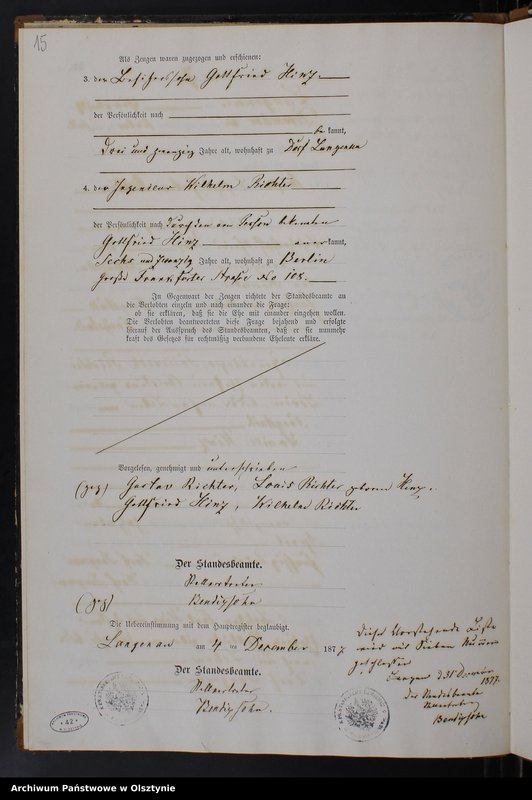 15
Als Zeugen waren zugezogen und erschienen:
3. der Besitzerssohn Gottfried Hinz
der Persönlichkeit nach
bekannt,
drei und zwanzig Jahre alt, wohnhaft zu Dorf Langenau
4. der Ingenieur Wilhelm Richter
der Persönlichkeit nach durch den von Person bekannten
Gottfried Hinz anerkannt,
sechs und zwanzig Jahre alt, wohnhaft zu Berlin
große Frankfurter Straße No 108.
In Gegenwart der Zeugen richtete der Standesbeamte an
die Verlobten einzeln und nach einander die Frage:
ob sie erklären, daß sie die Ehe mit einander eingehen wollen.
Die Verlobten beantworteten diese Frage bejahend und erfolgte
hierauf der Ausspruch des Standesbeamten, daß er sie nunmehr
kraft des Gesetzes für rechtmäßig verbundene Eheleute erkläre.
Vorgelesen, genehmigt und unterschrieben
(gez) Gustav Richter, Louis Richter geboren Hinz.
Gottfried Hinz, Wilhelm Richter
Der Standesbeamte.
(gez)
Die Uebereinstimmung mit dem Hauptregister beglaubigt.
Langenau am 4 ten Dezember 1877
Der Standesbeamte.
Diese vorstehende Liste
wird mit sieben Nummern
geschlossen
Langenau d 31 Dezember
1877.
Der Standesbeamte
42
Archiwum Państwowe w Olsztynie